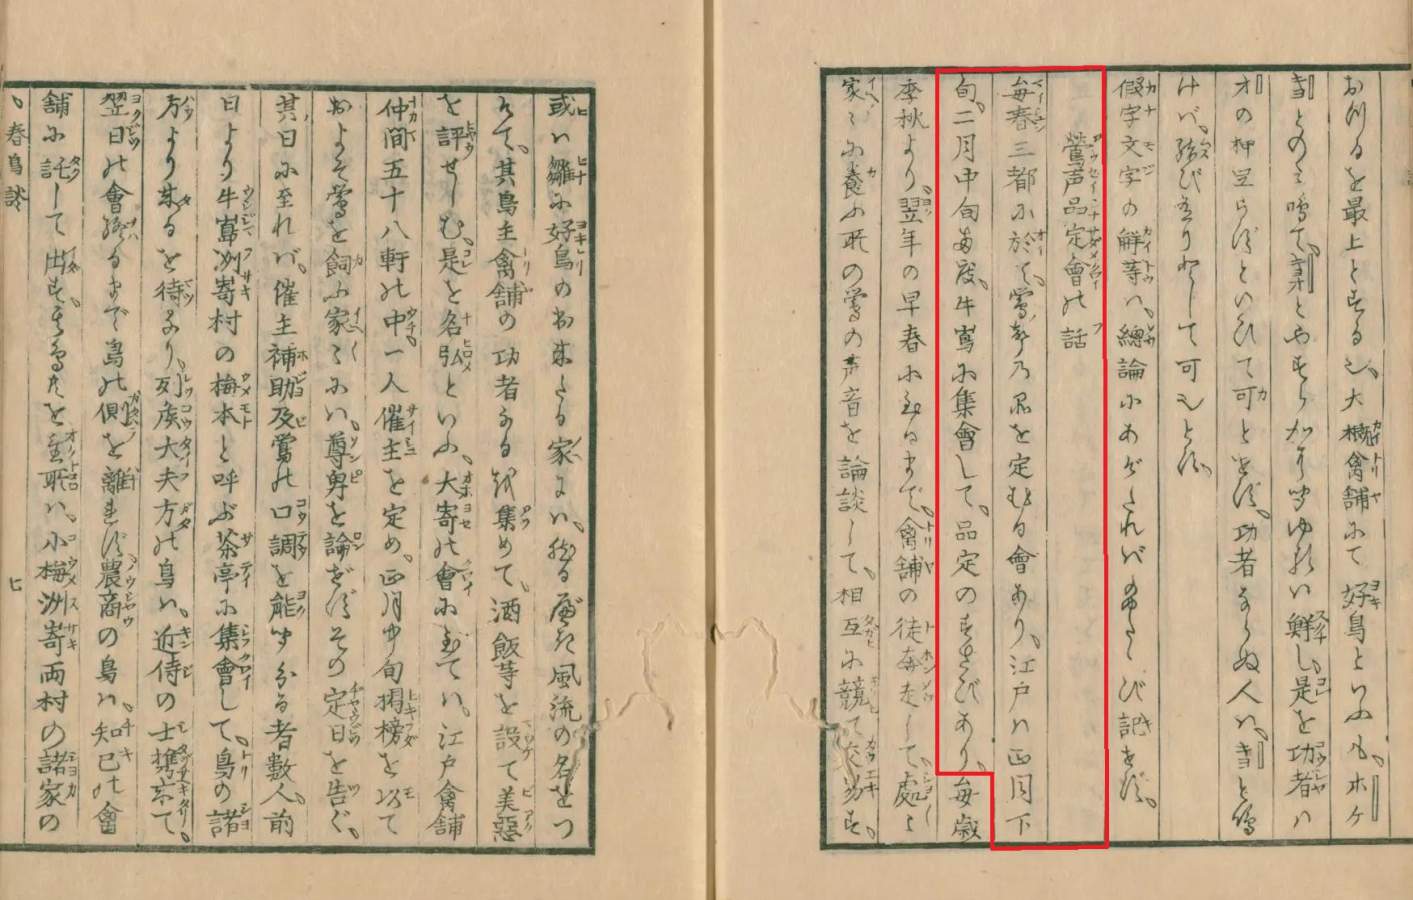 を最上とする也、大概禽舗にて好鳥といふも、ホケ
とのミ鳴て、とやすらかにゆるハ鮮し、是を功者ハ
オの押足らずといひて可とせず、功者ならぬ人ハ、と
けバ、びありとして可也とす、
假字文字の解等ハ、總論にあげたれバふたゝび記せず、
鶯声品定會の話
毎春三都に於て、鶯声乃品を定むる會あり、江戸ハ正月下
旬、二月中旬両度、牛嶌に集會して、品定のすさびあり、毎歳
季秋より、翌年の早春にいたるまで、禽舗の徒奔走して、處々
家々に養ふ所の鶯の声音を論談して、相互に競て交易す、
或ハ雛に好鳥の出来たる家にハ、風流の名をつ
けて、其鳥主禽舗の功者なるを集めて、酒飯等を設て美惡
を評せしむ、是を名弘といふ、大寄の會にいたてハ、江戸禽舗
仲間五十八軒の中、一人催主を定め、正月中旬榻榜を以て
およそ鶯を飼ふ家々にハ、尊卑を論ぜずその定日を告ぐ、
其日に至れバ、催主補助及鶯の口調を能聞分る者数人、前
日より牛嶌洲嵜村の梅本と呼ぶ茶亭に集會して、鳥の諸
方より来るを待なり、列侯大夫方の鳥ハ、近侍の士携来て、
翌日の會終るまで鳥の側を離れず、農商の鳥ハ、知己の會
舗に託して出す、其鳥を置所ハ、小梅洲嵜両村の諸家の
春鳥談
七